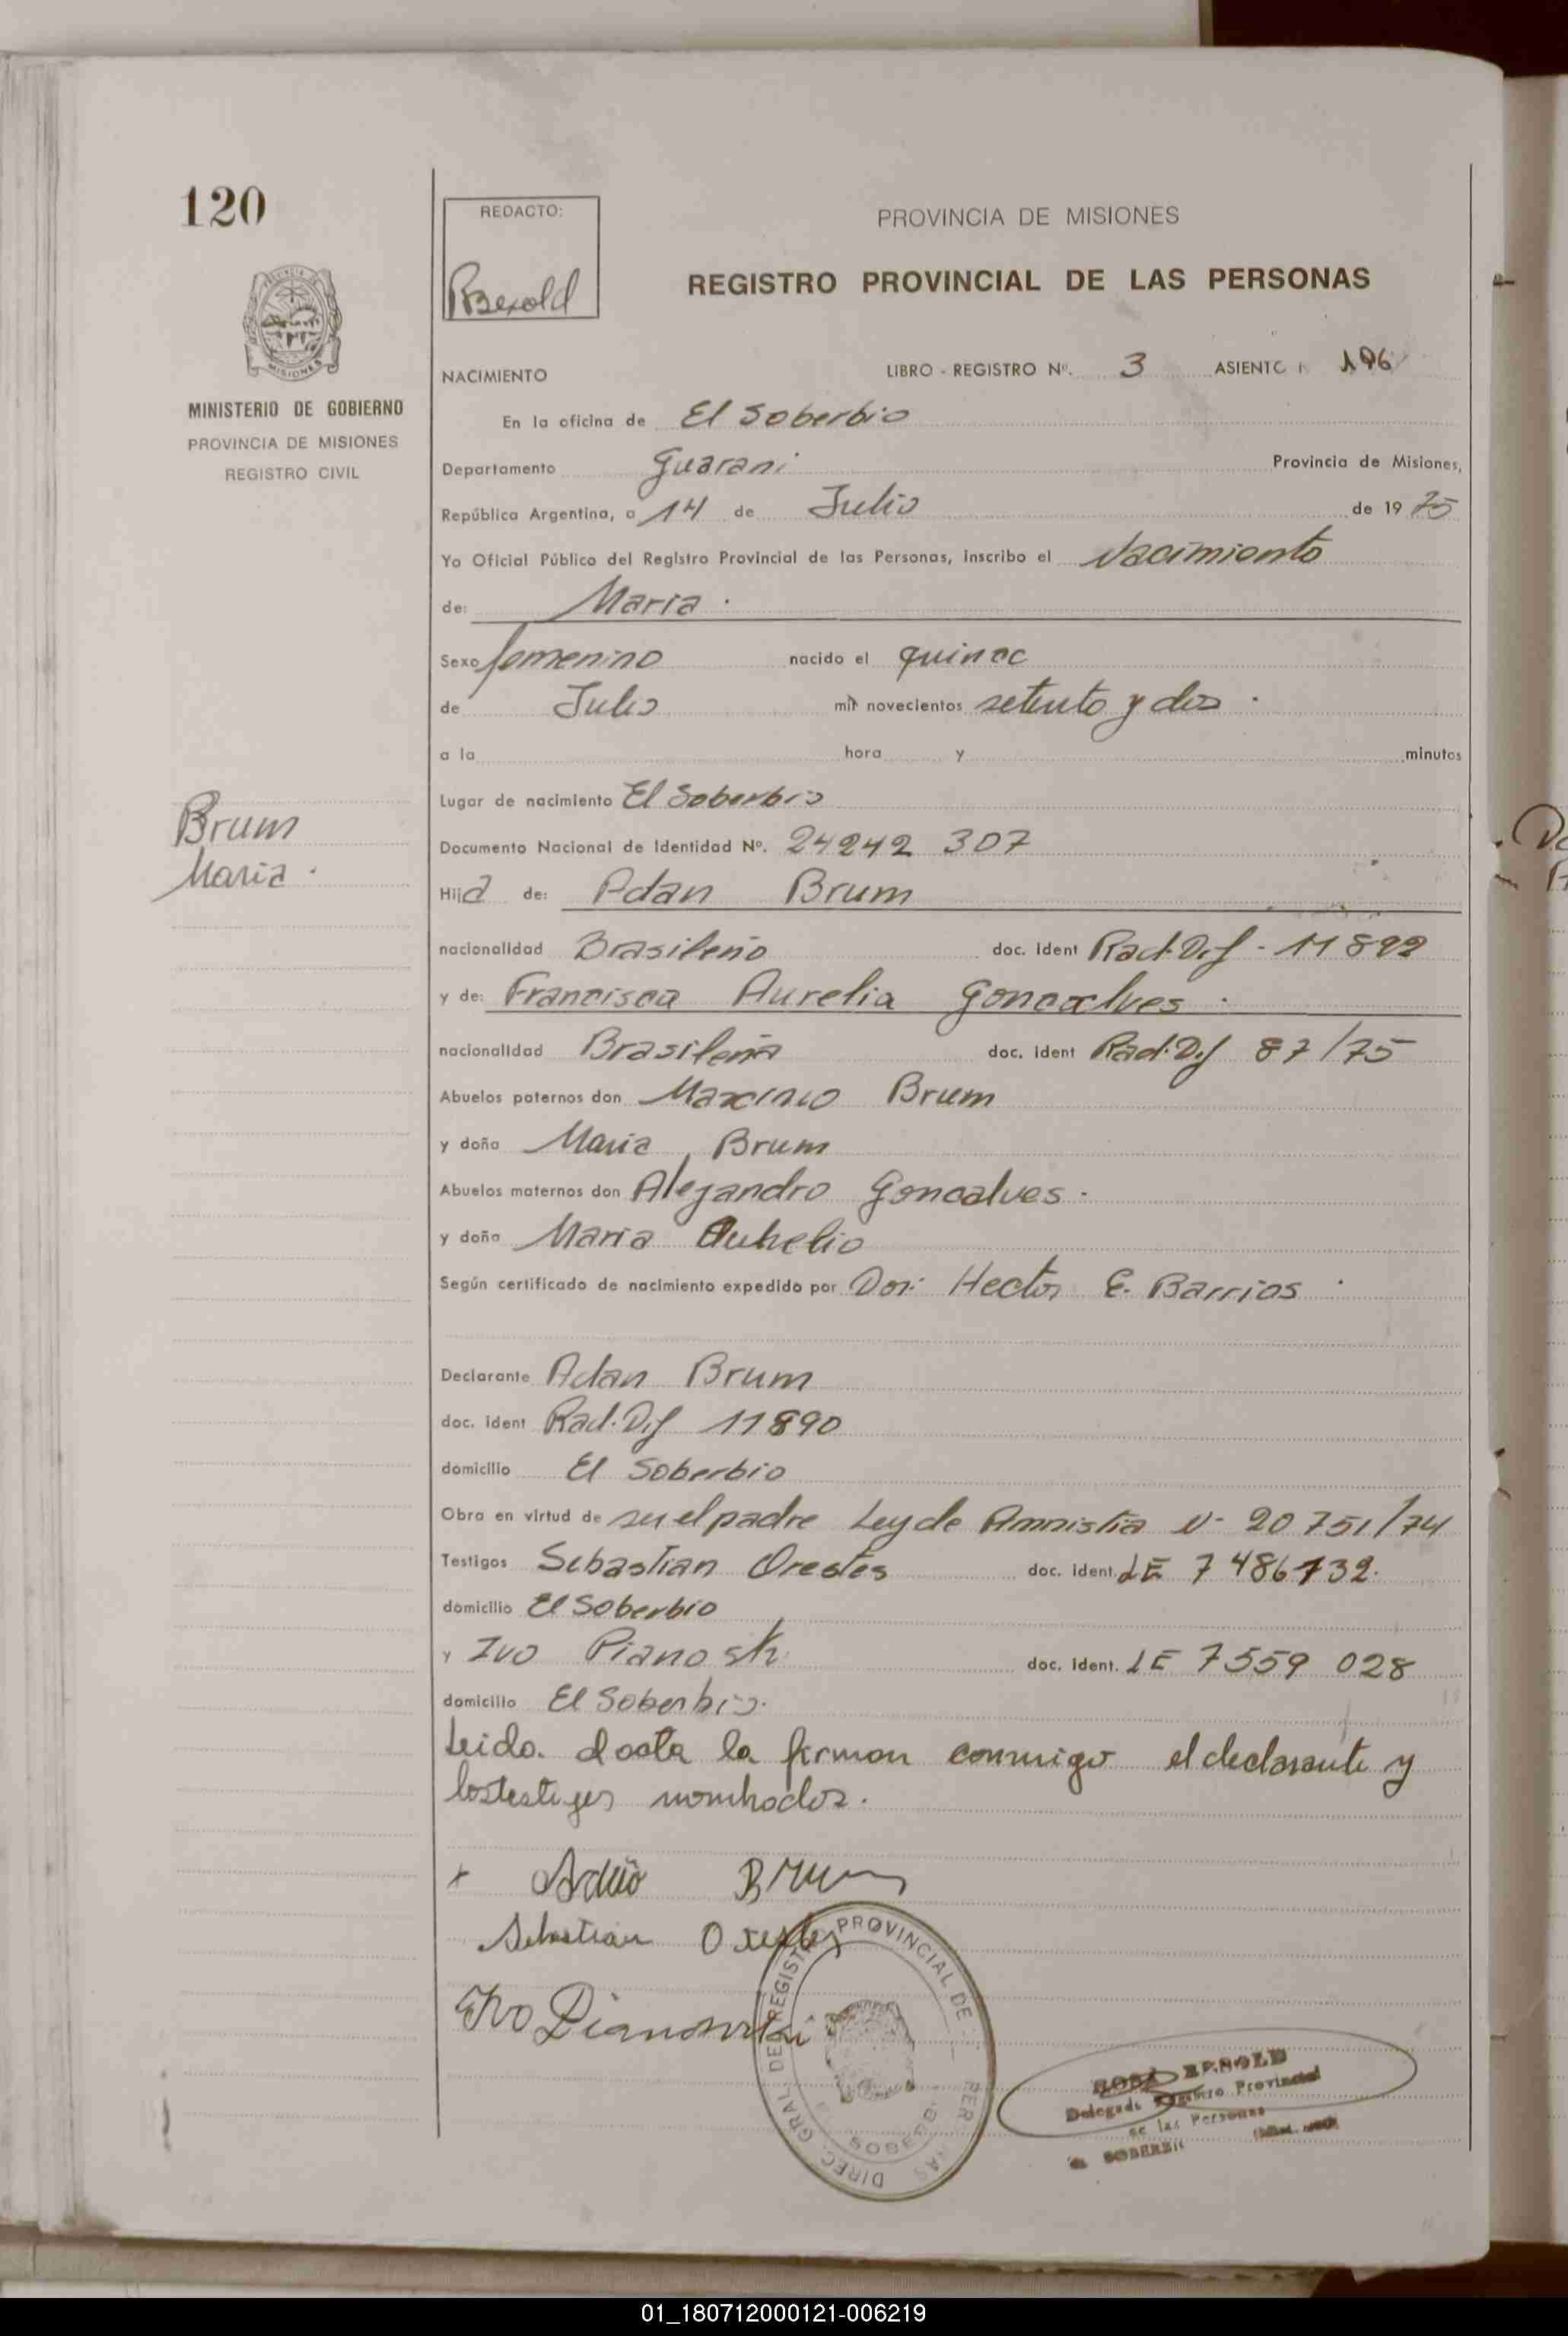 120
REDACTO:
PROVINCIA DE MISIONES
REGISTRO PROVINCIAL DE LAS PERSONAS
MISIONES
MINISTERIO DE GOBIERNO
PROVINCIA DE MISIONES
REGISTRO CIVIL
NACIMIENTO LIBRO - REGISTRO Nº. 3 ASIENTO 196
En la oficina de El Soberbio
Departamento Guarani Provincia de Misiones,
República Argentina, a 14 de Julio de 19 75
Yo Oficial Público del Registro Provincial de las Personas, inscribo el Nacimiento
de: Maria .
Sexo femenino nacido el quince
de Julio mil novecientos setenta y dos .
a la hora y minutos
Lugar de nacimiento El Soberbio
Brum
Maria .
Documento Nacional de Identidad Nº. 24242 307
Hija de: Adan Brum
nacionalidad Brasileño doc. ident Rad. Dif - 11892
y de: Francisca Aurelia Goncalves .
nacionalidad Brasileña doc. ident Rad. Dif 87/75
Abuelos paternos don Brum
y doña Maria Brum
Abuelos maternos don Alejandro Goncalves .
y doña Maria
Según certificado de nacimiento expedido por Hector E. Barrios
Declarante Adan Brum
doc. ident Rad. Dif 11890
domicilio El Soberbio
Obra en virtud de ser el padre Ley de Amnistia Nº 20751/74
Testigos Sebastian Orestes doc. ident. LE 7486732.
domicilio El Soberbio
y Ivo Pianoski doc. ident. LE 7559 028
domicilio El Soberbio.
Leida el acta la firman conmigo el declarante y
los testigos nombrados.
x Brum
Sebastian Orestes
Ivo Pianoski
DIREC. GRAL. DEL REGISTRO PROVINCIAL DE
Delegada Registro Provincial
de las Personas
01_180712000121-006219